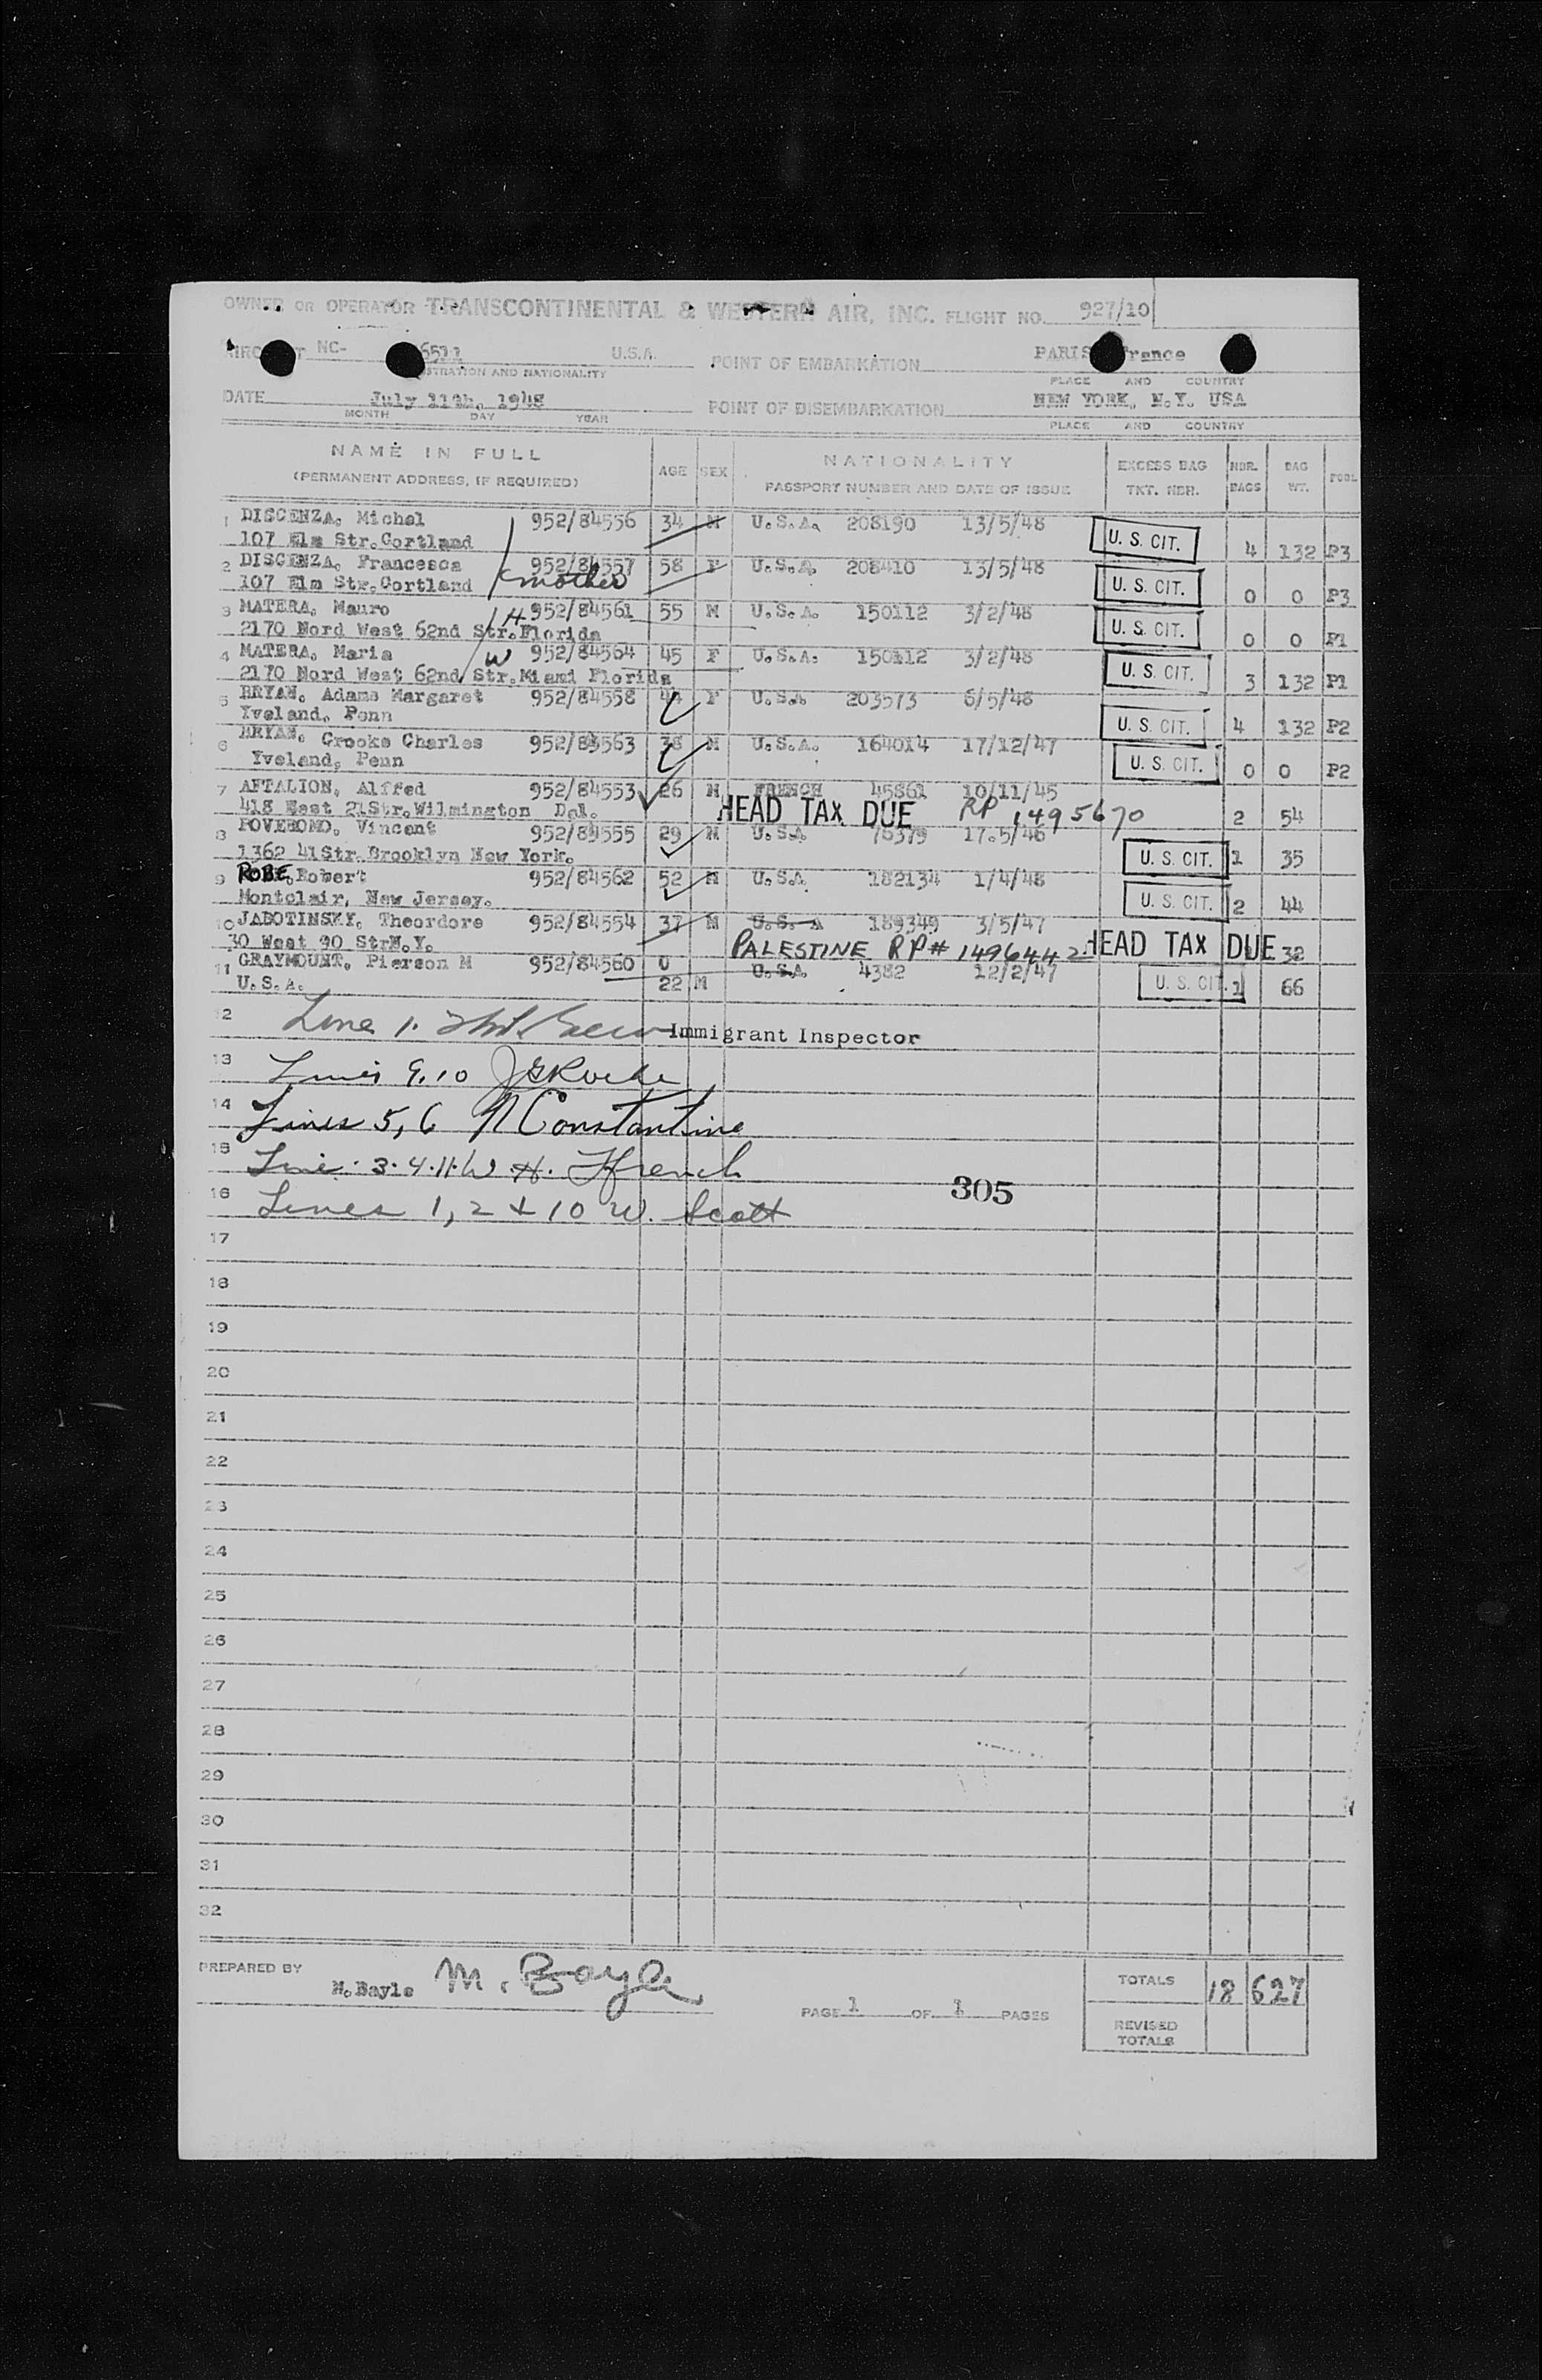 OWNER OR OPERATOR TRANSCONTINENTAL & WESTERN AIR, INC. FLIGHT NO. 927/10
NC- 6511 U.S.A. POINT OF EMBARKATION PARIS France
PLACE AND COUNTRY
DATE July 11th, 1948 POINT OF DISEMBARKATION NEW YORK, N.Y. USA
MONTH DAY YEAR PLACE AND COUNTRY
NAME IN FULL AGE SEX NATIONALITY EXCESS BAG NBR. BAG POOL
(PERMANENT ADDRESS, IF REQUIRED) PASSPORT NUMBER AND DATE OF ISSUE TKT. NBR. BAGS WT.
1 DISCENZA, Michel 952/84556 34 M U.S.A. 208190 13/5/48 U. S. CIT. 4 132 P3
107 Elm Str.Cortland
2 DISCENZA, Francesca 952/84557 58 F U.S.A. 208410 13/5/48 U. S. CIT. 0 0 P3
107 Elm Str.Cortland mother
3 MATERA, Mauro H 952/84561 55 M U.S.A. 150112 3/2/48 U. S. CIT. 0 0 P1
2170 Nord West 62nd Str.Florida
4 MATERA, Maria W 952/84564 45 F U.S.A. 150112 3/2/48 U. S. CIT. 3 132 P1
2170 Nord West 62nd Str.Miami Florida
5 BRYAN, Adams Margaret 952/84558 44 F U.S.A 203573 6/5/48 U. S. CIT. 4 132 P2
Yveland, Penn
6 BRYAN, Crooks Charles 952/84563 38 M U.S.A. 164014 17/12/47 U. S. CIT. 0 0 P2
Yveland, Penn
7 AFTALION, Alfred 952/84553 26 M FRENCH 45861 10/11/45 2 54
418 West 21Str.Wilmington Del. HEAD TAX DUE RP 1495670
8 POVEROMO, Vincent 952/84555 29 M U.S.A 76379 17.5/46 U. S. CIT. 1 35
1362 41Str.Brooklyn New York.
9 ROBE, Robert 952/84562 52 M U.S.A 182134 1/4/48 U. S. CIT. 2 44
Montclair, New Jersey.
10 JABOTINSKY, Theordore 952/84554 37 M U.S. A 189349 3/5/47
30 West 90 StrN.Y. PALESTINE RP # 1496442 HEAD TAX DUE 32
11 GRAYMOUNT, Pierson M 952/84560 0 U.S.A. 4382 12/2/47
U.S.A. 22 M U. S. CIT. 1 66
12 Line 1. Immigrant Inspector
13 Lines 9, 10
14 Lines 5, 6 N Constantine
15 Line 3.4.11. W H. Ffrench
16 Lines 1, 2 + 10 W. Scott
305
17
18
19
20
21
22
23
24
25
26
27
28
29
30
31
32
PREPARED BY M.Bayle M. Bayle PAGE 1 OF 1 PAGES TOTALS 18 627
REVISED
TOTALS